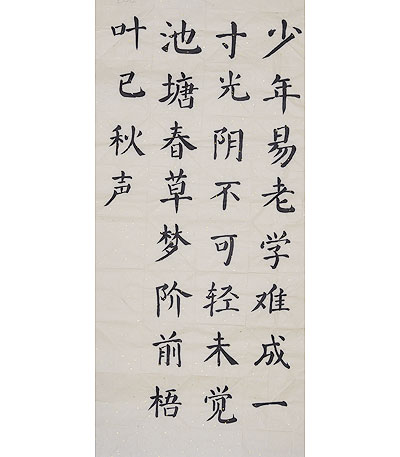 少年易老学难成一
寸光阴不可轻未觉
池塘春草梦阶前梧
叶已秋声